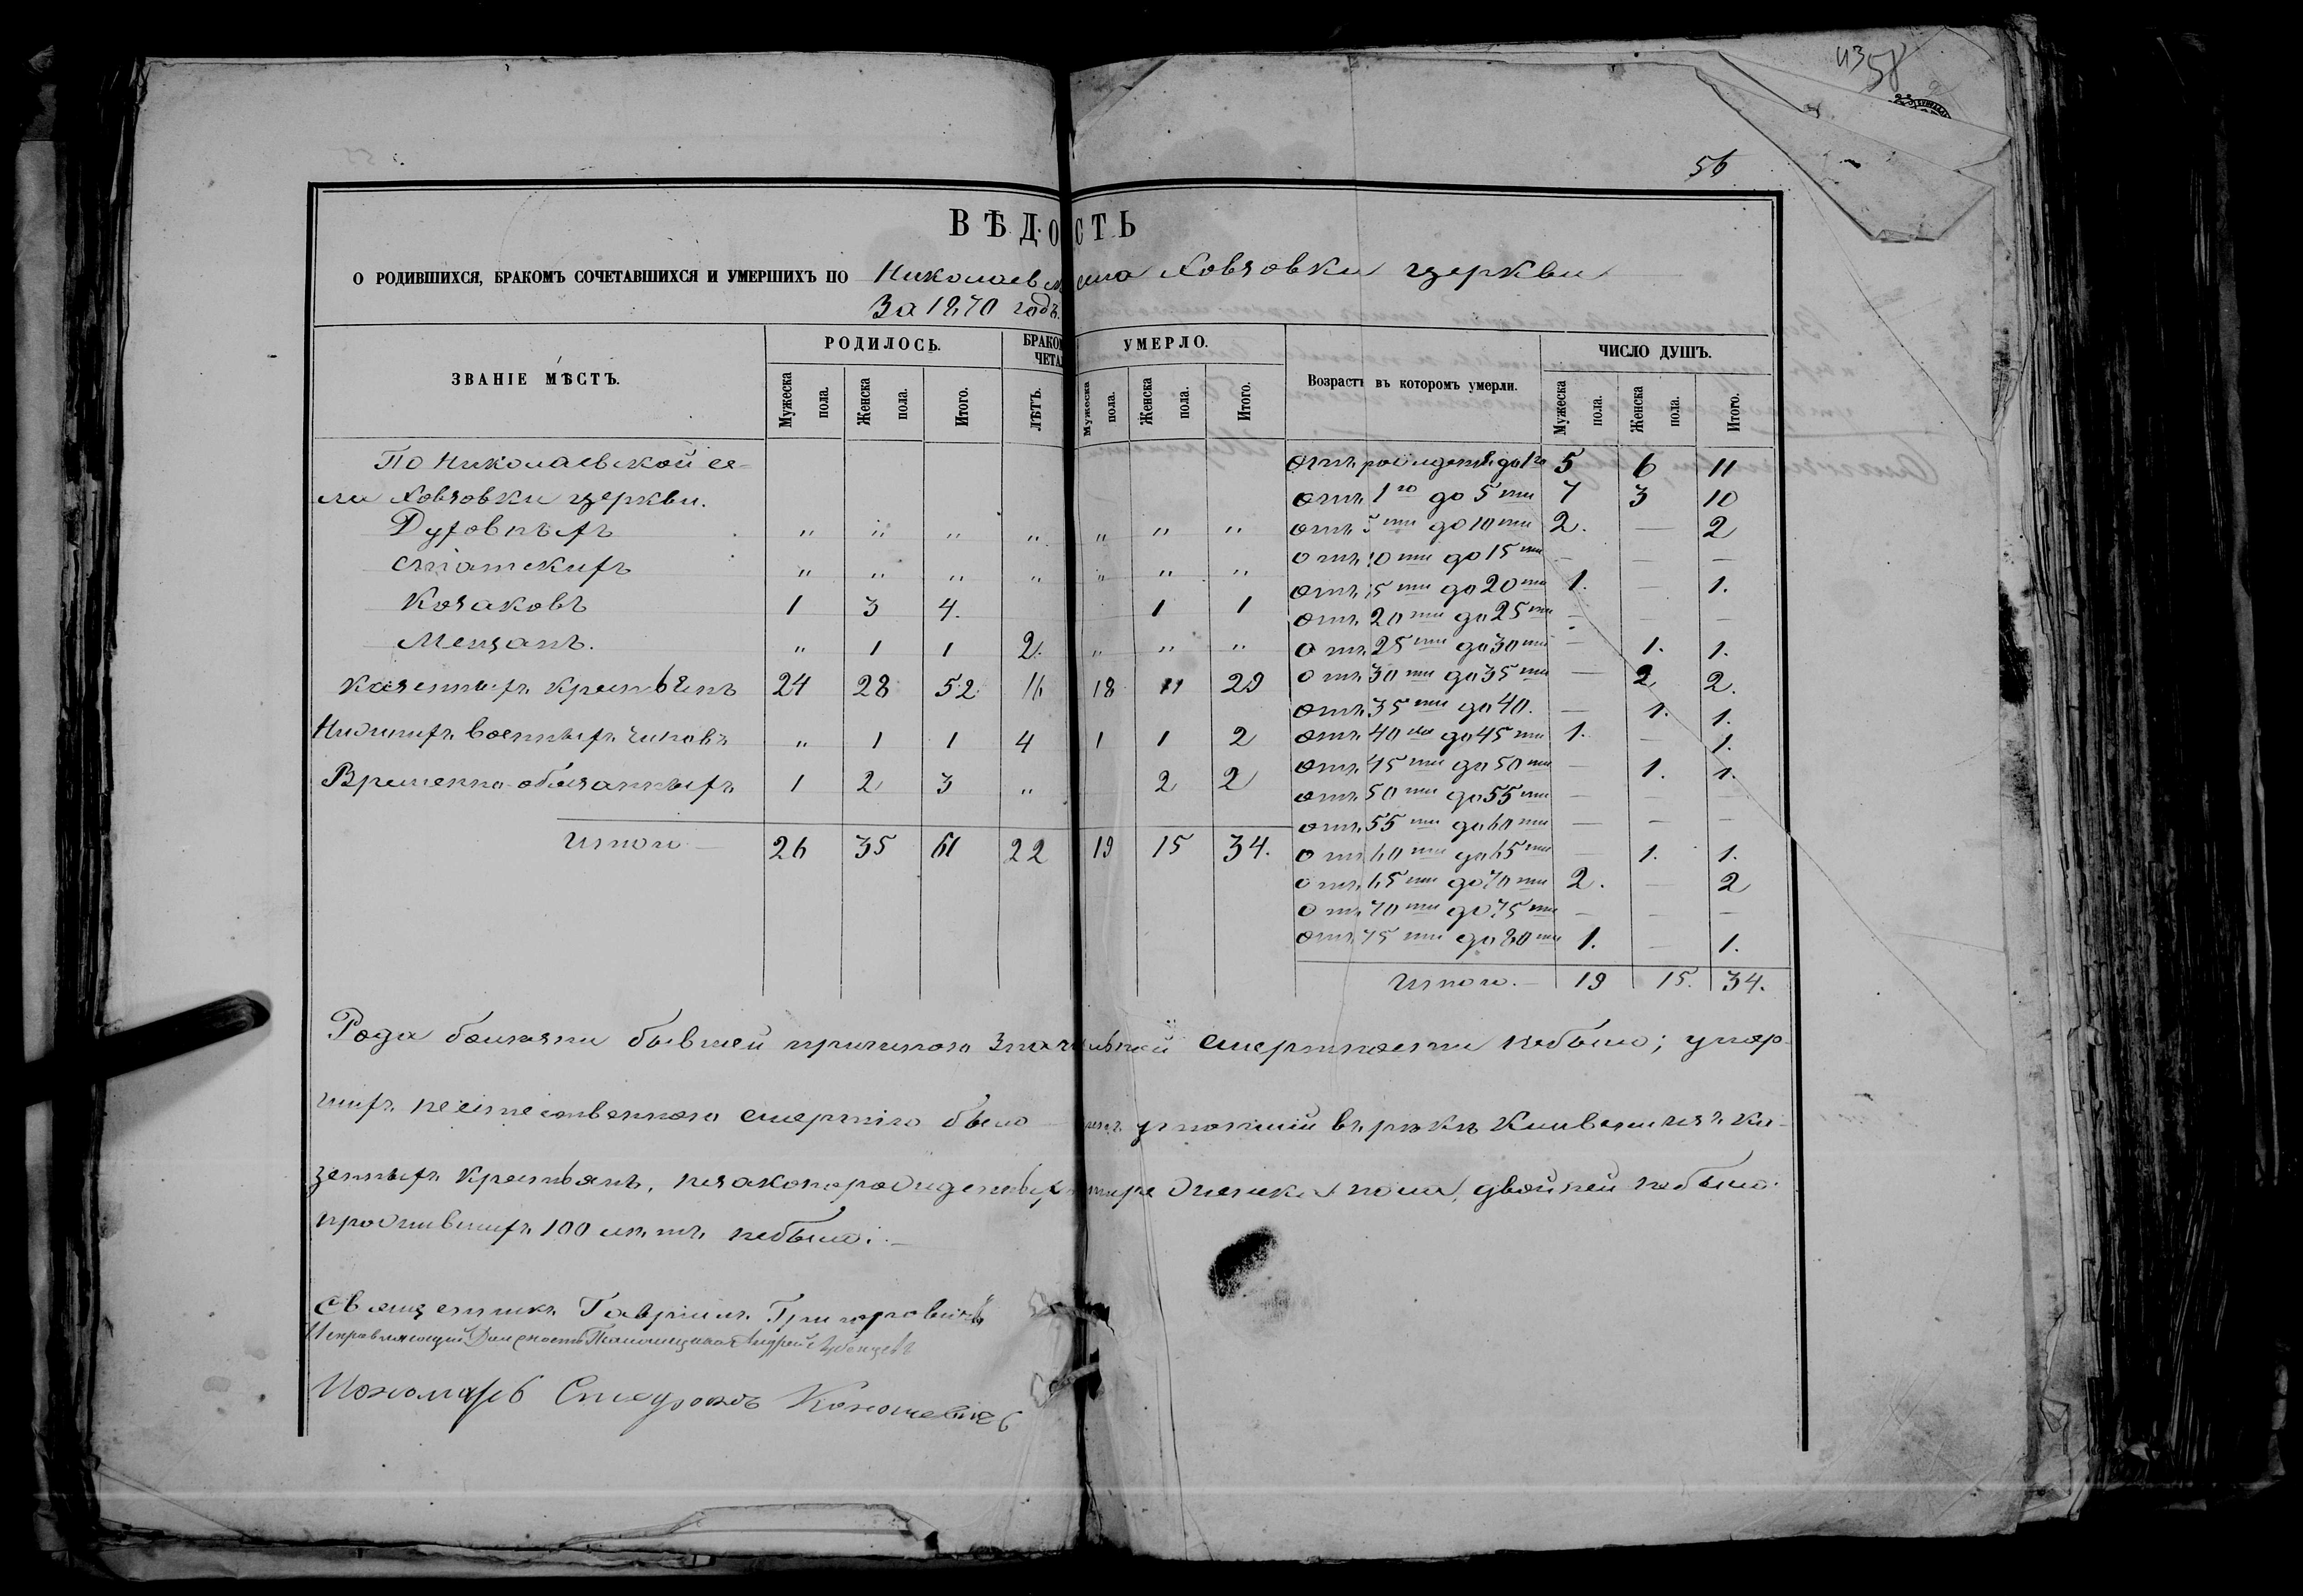 43 58
56
ВѢДОСТЬ
О РОДИВШИХСЯ, БРАКОМЪ СОЧЕТАВШИХСЯ И УМЕРШИХЪ ПО Николаев церкви
За 1870 годъ.
ЗВАНІЕ МѢСТЪ. РОДИЛОСЬ. БРАКО УМЕРЛО. Возрастъ въ которомъ умерли. ЧИСЛО ДУШЪ.
ЧЕТА
Мужеска пола. Женска пола. Итого. ЛѢТЪ. Мужеска пола. Женска пола. Итого. Мужеска пола. Женска пола. Итого.
По Николаевской се-
ла Ховзовки церкви.
Духовныхъ " " " " " " "
Статскихъ " " " " " " "
Козаковъ 1 3 4. 1 1
Мещанъ. " 1 1 2. " " "
Казенныхъ крестьянъ 24 28 52 16 18 11 29
Нижнихъ военныхъ чиновъ " 1 1 4 1 1 2
Временно-обязанныхъ 1 2 3 " 2 2
Итого 26 35 61 22 19 15 34.
отъ рожденія до 1го 5 6 11
отъ 1го до 5ти 7 3 10
отъ 5ти до 10ти 2. — 2
отъ 10ти до 15ти — — —
отъ 15ти до 20ти 1. — 1.
отъ 20ти до 25ти — — —
отъ 25ти до 30ти — 1. 1.
отъ 30ти до 35ти — 2 2.
отъ 35ти до 40. — 1. 1.
отъ 40ка до 45ти 1. — 1.
отъ 45ти до 50ти — 1. 1.
отъ 50ти до 55ти — — —
отъ 55ти до 60ти — — —
отъ 60ти до 65ти — 1. 1.
отъ 65ти до 70ти 2. — 2
отъ 70ти до 75ти — — —
отъ 75ти до 80ти 1. — 1.
Итого. — 19 15. 34.
Рода болезни бывшей причиною значительной смертности небыло; умер-
шихъ неестественною смертію было утопшій въ рекѣ изъ ка-
зенныхъ крестьянъ, незаконорожденныхъ женска пола, двойней небыло.
прожившихъ 100 лѣтъ небыло. —
Священникъ Гавріилъ Григоровичъ
Исправляющій Должность Андрей
Пономарь Спиридонъ Кономевичъ